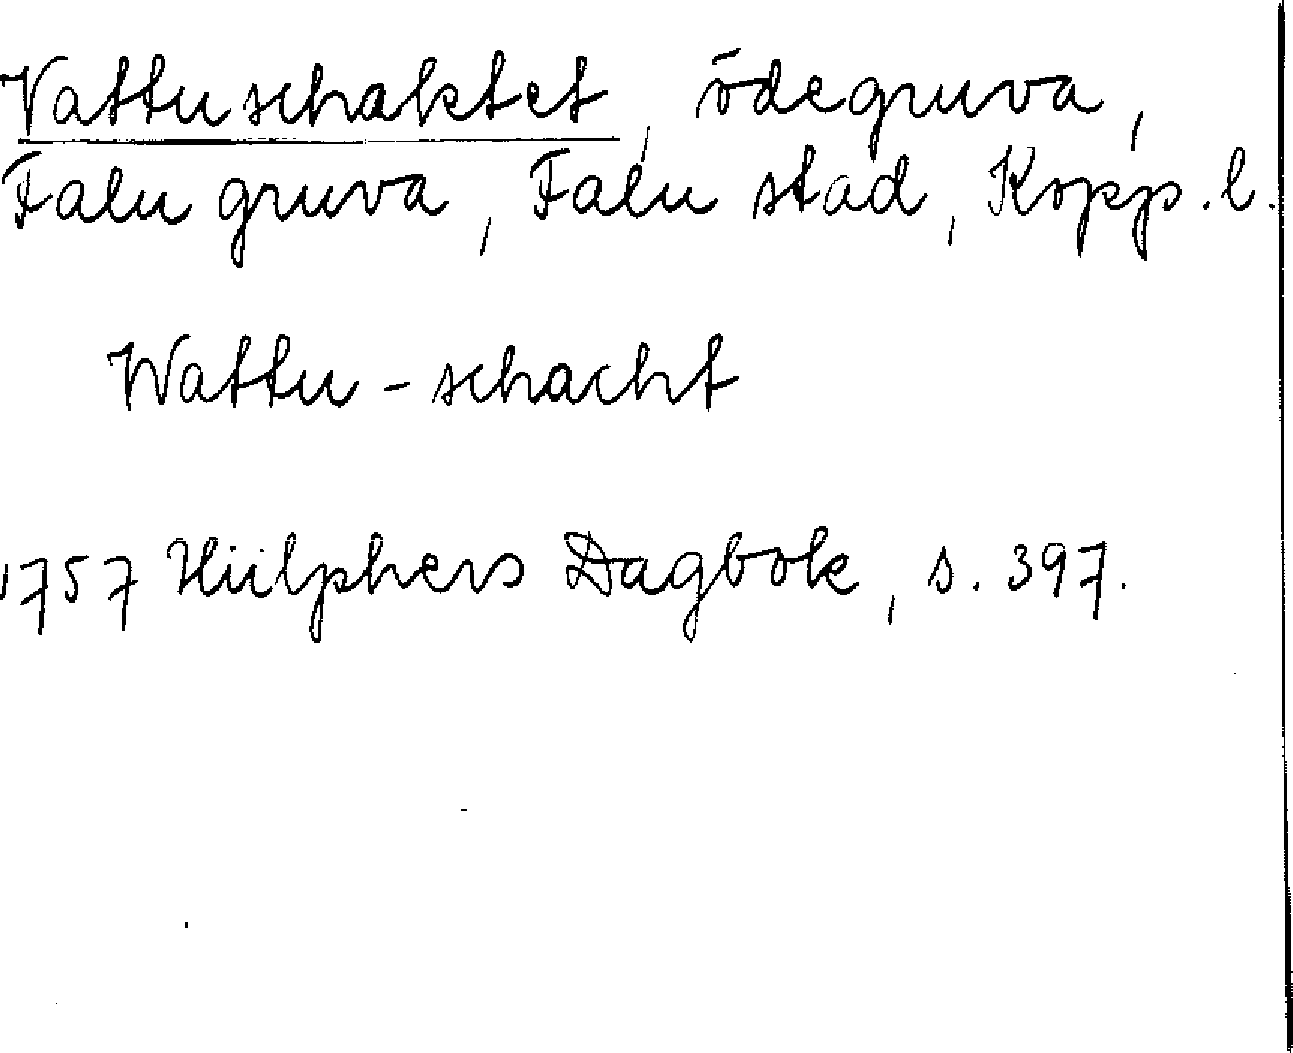 Vattuschaktet, ödegruva,
Falu gruva, Falu stad, Kopp. l.
Wattu-schacht
1757 Hülphers Dagbok, s. 397.